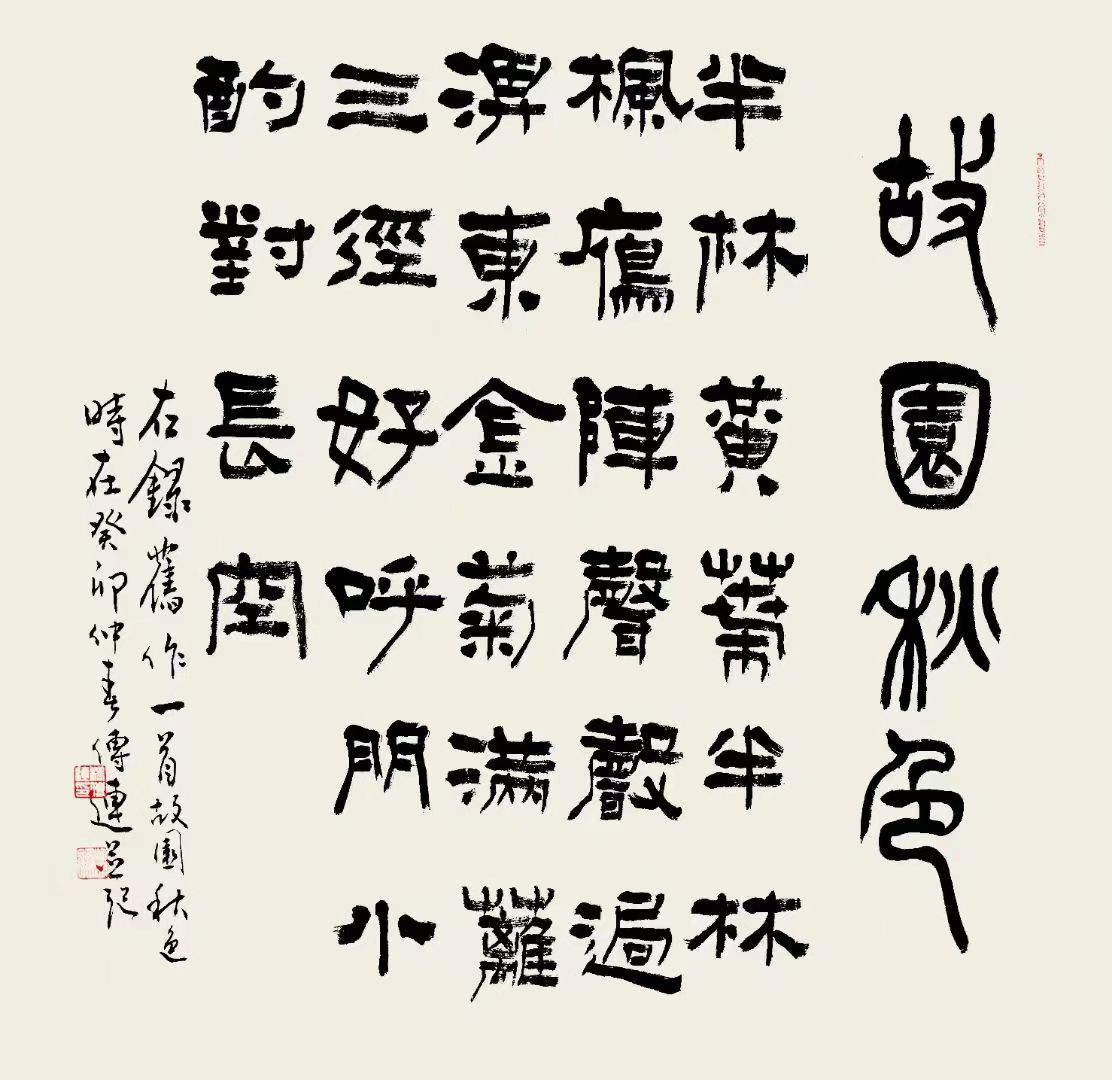 故園秋色
半林黄葉半林
楓雁陣聲聲過
淠東金菊滿籬
三徑好呼門小
酌對長空
右錄舊作一首故園秋色
時在癸卯仲春傳連並記